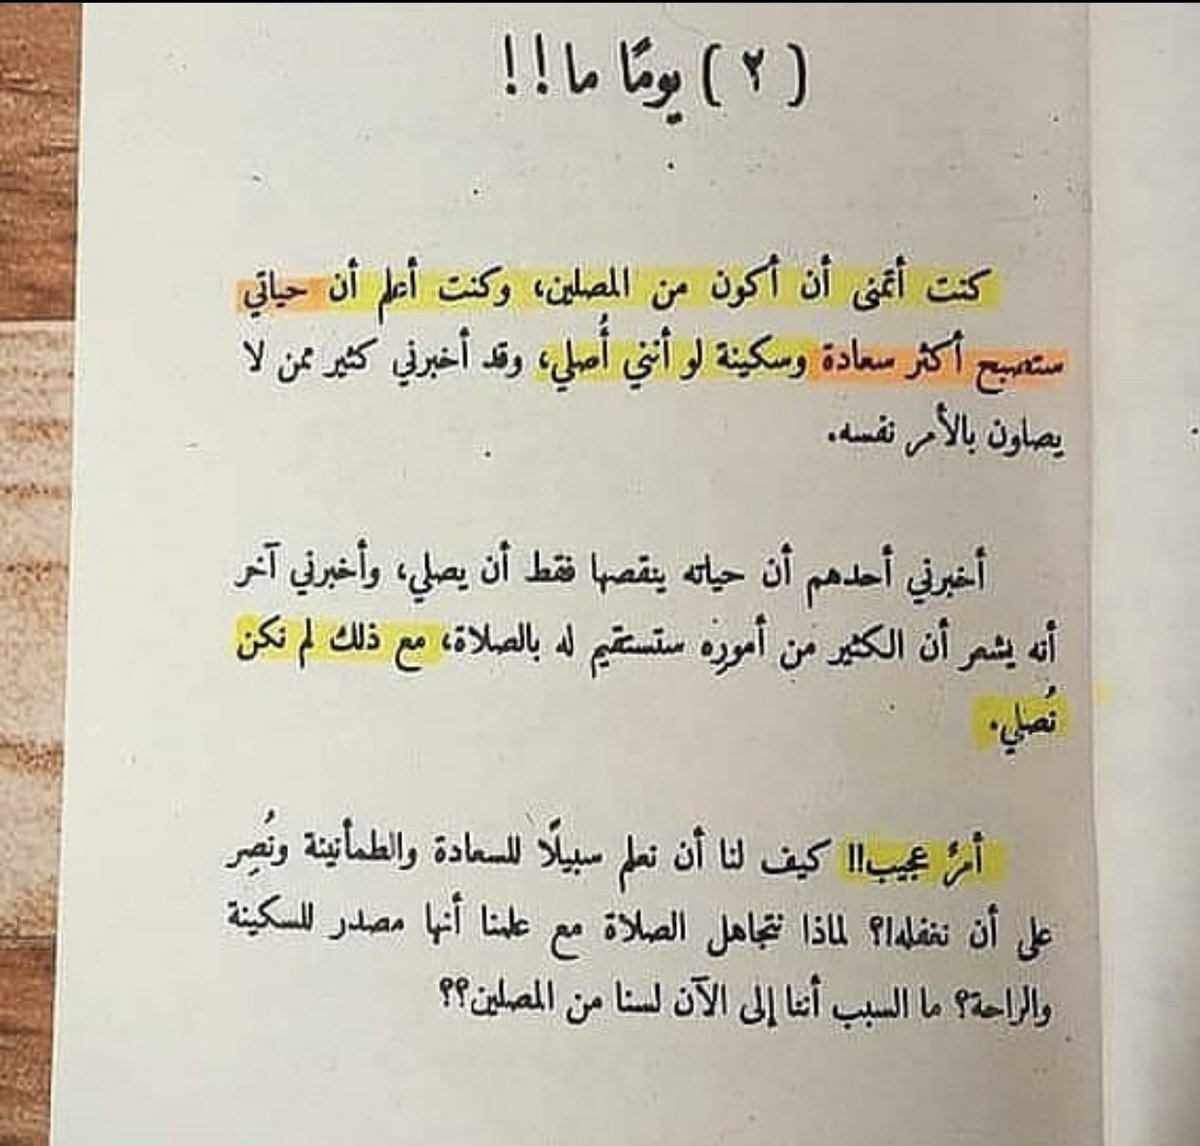 (٢) يومًا ما!!
كنت أتمنى أن أكون من المصلين، وكنت أعلم أن حياتي
ستصبح أكثر سعادة وسكينة لو أنني أُصلي، وقد أخبرني كثير ممن لا
يصلون بالأمر نفسه.
أخبرني أحدهم أن حياته ينقصها فقط أن يصلي، وأخبرني آخر
أنه يشعر أن الكثير من أموره ستستقيم له بالصلاة، مع ذلك لم نكن
نُصلي.
أمرٌ عجيب!! كيف لنا أن نعلم سبيلًا للسعادة والطمأنينة ونُصِر
على أن نغفلها؟ لماذا نتجاهل الصلاة مع علمنا أنها مصدر للسكينة
والراحة؟ ما السبب أننا إلى الآن لسنا من المصلين؟؟